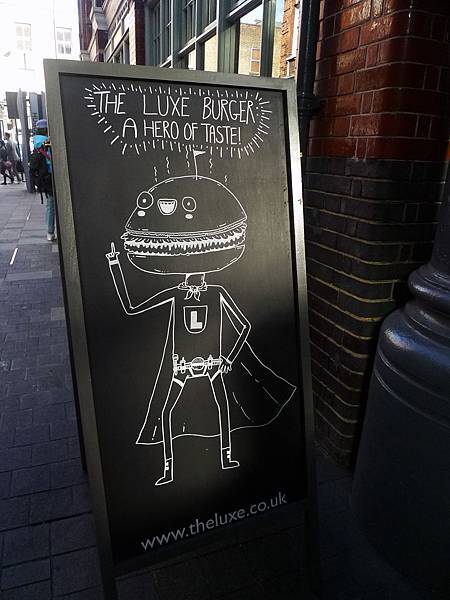 THE LUXE BURGER:
A HERO OF TASTE!
L
www.theluxe.co.uk